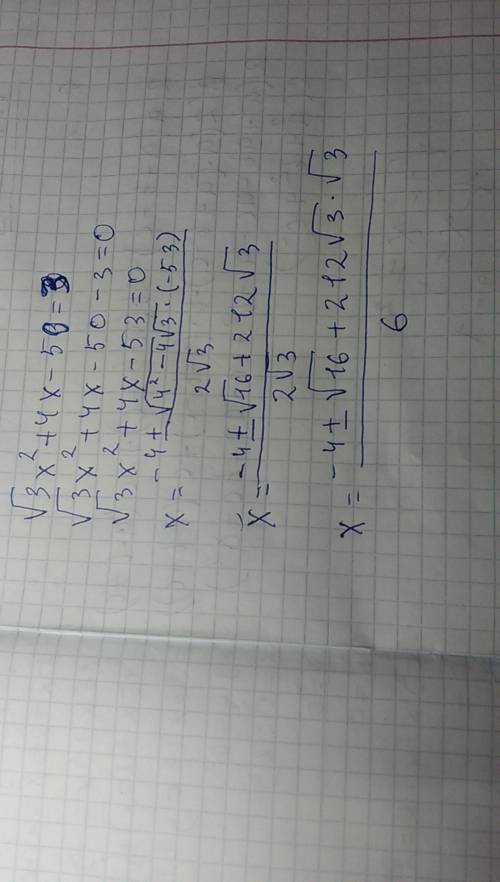 √3x² + 4x - 50 = 3
√3x² + 4x - 50 - 3 = 0
√3x² + 4x - 53 = 0
x = (-4 ± √(4² - 4√3 · (-53))) / (2√3)
x = (-4 ± √(16 + 212√3)) / (2√3)
x = (-4 ± √(16 + 212√3) · √3) / 6